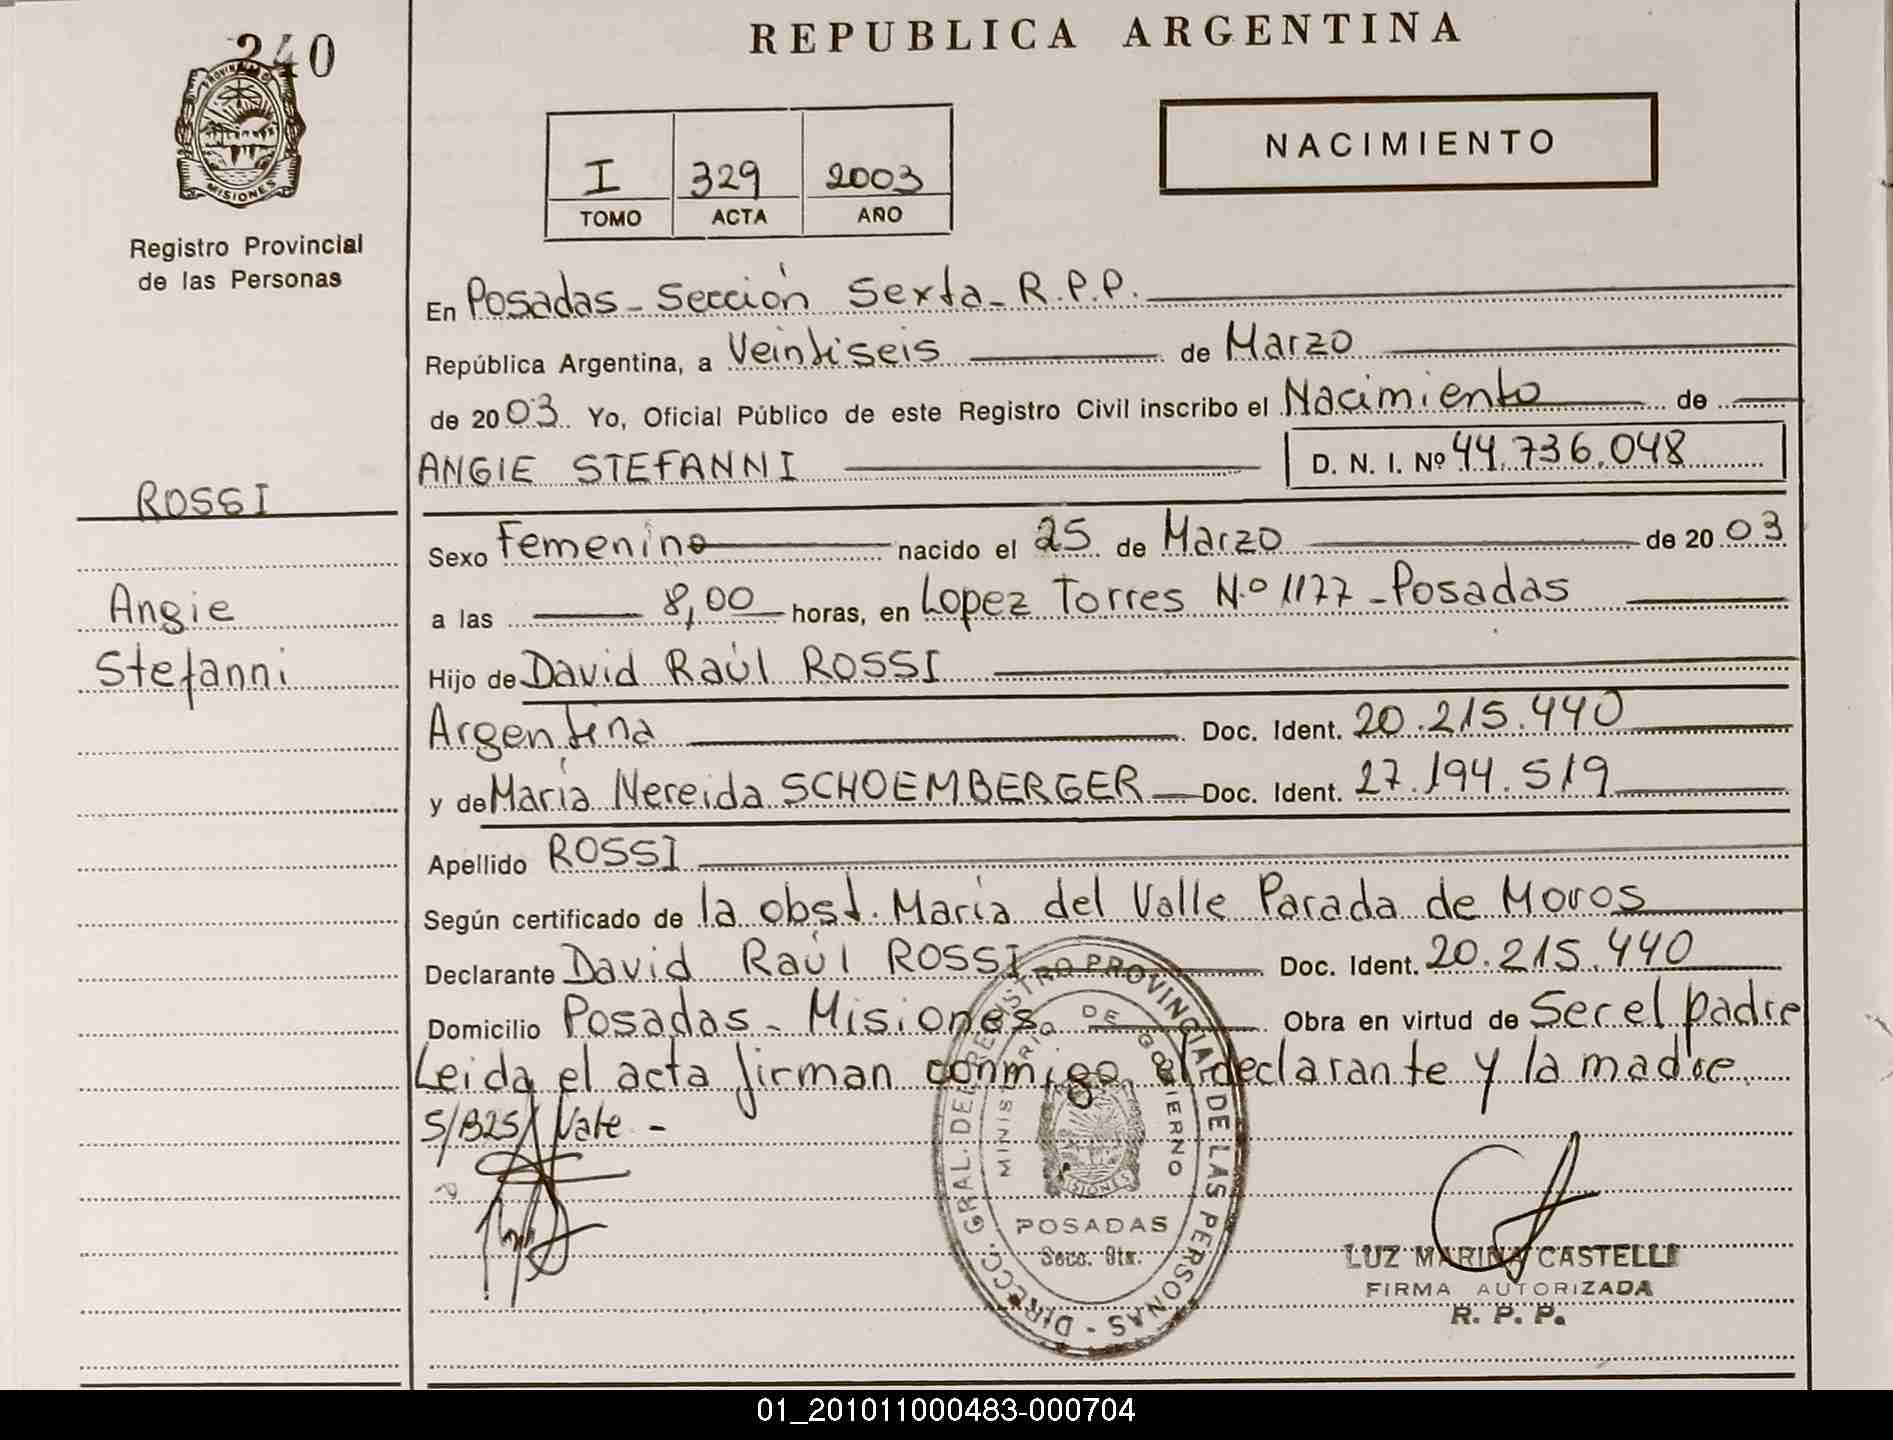 240
PROVINCIA DE
MISIONES
Registro Provincial
de las Personas
ROSSI
Angie
Stefanni
REPUBLICA ARGENTINA
I 329 2003
TOMO ACTA AÑO
NACIMIENTO
En Posadas - Sección Sexta - R.P.P.
República Argentina, a Veintiseis de Marzo
de 2003. Yo, Oficial Público de este Registro Civil inscribo el Nacimiento de
ANGIE STEFANNI D. N. I. Nº 44.736.048
Sexo Femenino nacido el 25 de Marzo de 2003
a las 8,00 horas, en Lopez Torres N.º 1177 - Posadas
Hijo de David Raúl ROSSI
Argentina Doc. Ident. 20.215.440
y de María Nereida SCHOEMBERGER Doc. Ident. 27.194.519
Apellido ROSSI
Según certificado de la obst. María del Valle Parada de Moros
Declarante David Raúl ROSSI Doc. Ident. 20.215.440
Domicilio Posadas - Misiones. Obra en virtud de Ser el padre
Leida el acta firman conmigo el declarante y la madre.
S/B25/ Vale -
DIRECC. GRAL. DEL REGISTRO PROVINCIAL DE LAS PERSONAS -
MINISTERIO DE GOBIERNO
MISIONES
POSADAS
Secc. 6ta.
LUZ MARINA CASTELLI
FIRMA AUTORIZADA
R. P. P.
01_201011000483-000704